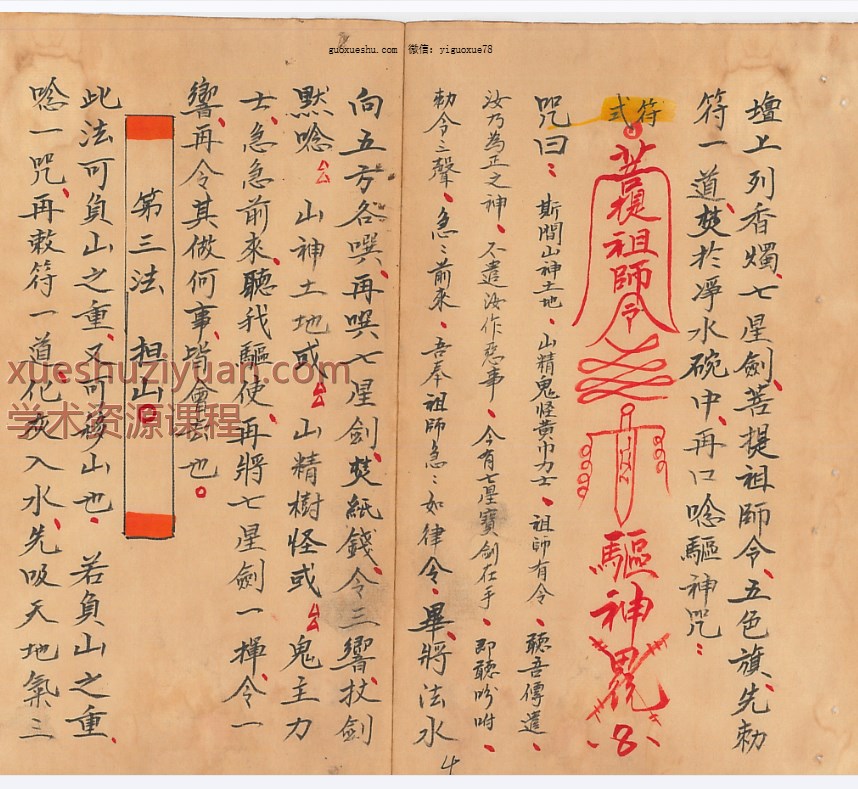 guoxueshu.com 微信：yiguoxue78
壇上列香燭、七星劍、菩提祖師令、五色旗、先勅
符一道、焚於凈水碗中、再口唸驅神咒：
符式
菩提祖師令
驅神
咒曰：斯間山神土地、山精鬼怪黄巾力士、祖師有令、聽吾傳遣、
汝乃為正之神、不遣汝作惡事、今有七星寳劍在手、即聽吩咐、
勅令三聲、急〻前來、吾奉祖師急〻如律令、畢、將法水
向五方各噀、再噀七星劍、焚紙錢、令三響、扙劍
默唸 山神土地或 山精樹怪或 鬼主力
士、急急前來、聽我驅使、再將七星劍一揮、令一
響、再令其做何事、皆會去也。
第三法 担山口
此法可負山之重、又可移山也、若負山之重、
唸一咒、再敕符一道、化灰入水、先吸天地氣三
4
xueshuziyuan.com
学术资源课程